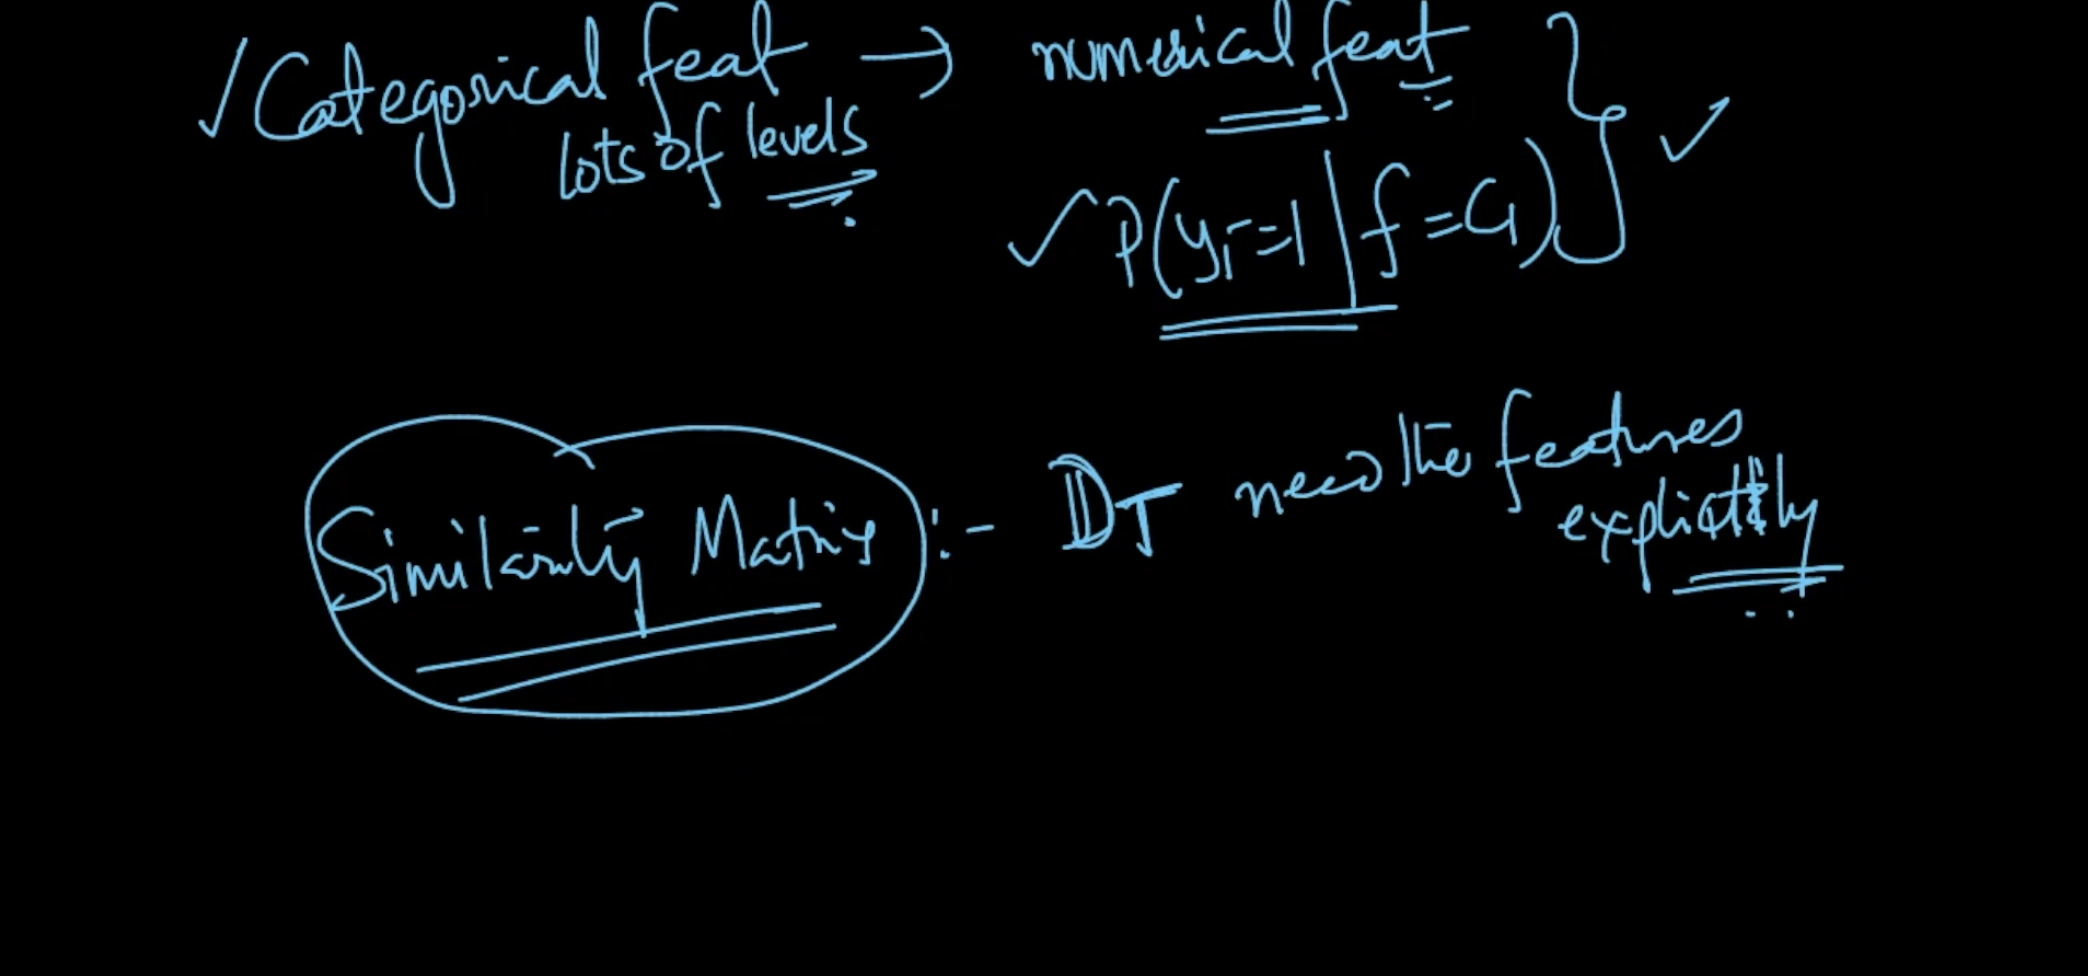 ✓ Categorical feat → numerical feat
lots of levels
✓ P(yi=1 | f=C1) ✓
Similarity Matrix :- DT need the features
explicitly